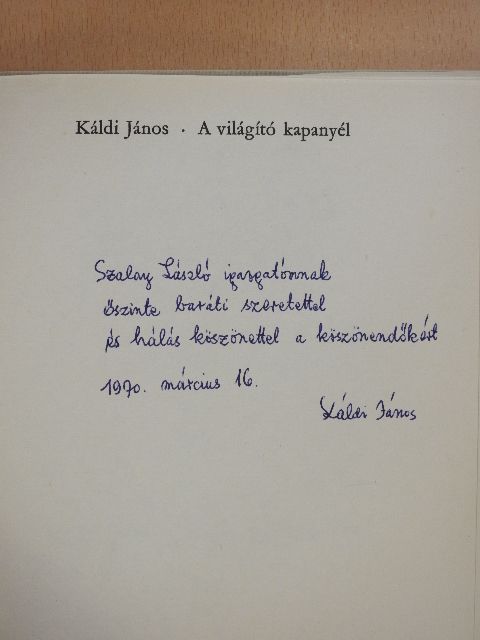 Káldi János · A világító kapanyél
Szalay László igazgatómnak
őszinte baráti szeretettel
és hálás köszönettel a köszönendőkért
1970. március 16.
Káldi János